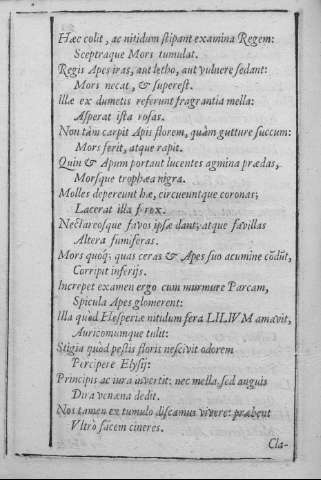 Hæc colit, ac nitidum stipant examina Regem:
Sceptraque Mors tumulat.
Regis Apes iras, aut letho, aut vulnere sedant:
Mors necat, & superest.
Illæ ex dumetis referunt fragrantia mella:
Asperat ista rosas.
Non tàm carpit Apis florem, quàm gutture succum:
Mors ferit, atque rapit.
Quin & Apum portant lucentes agmina prædas,
Morsque trophæa nigra.
Molles depereunt hæ, circueuntque coronas;
Lacerat illa f rox.
Nectareosque favos ipsæ dant; atque favillas
Altera fumiferas.
Mors quoq; quas ceras & Apes suo acumine cōdūt,
Corripit inferijs.
Increpet examen ergo cum murmure Parcam,
Spicula Apes glomerent:
Illa quòd Hesperiæ nitidum fera LILIVM amavit,
Auricomumque tulit:
Stigia quòd pestis floris nescivit odorem
Percipere Elysij:
Principis ac iura uvertit: nec mella, sed anguis
Dira venæna dedit.
Nos tamen ex tumulo discamus vivere: præbent
Vltrò facem cineres.
Cla-